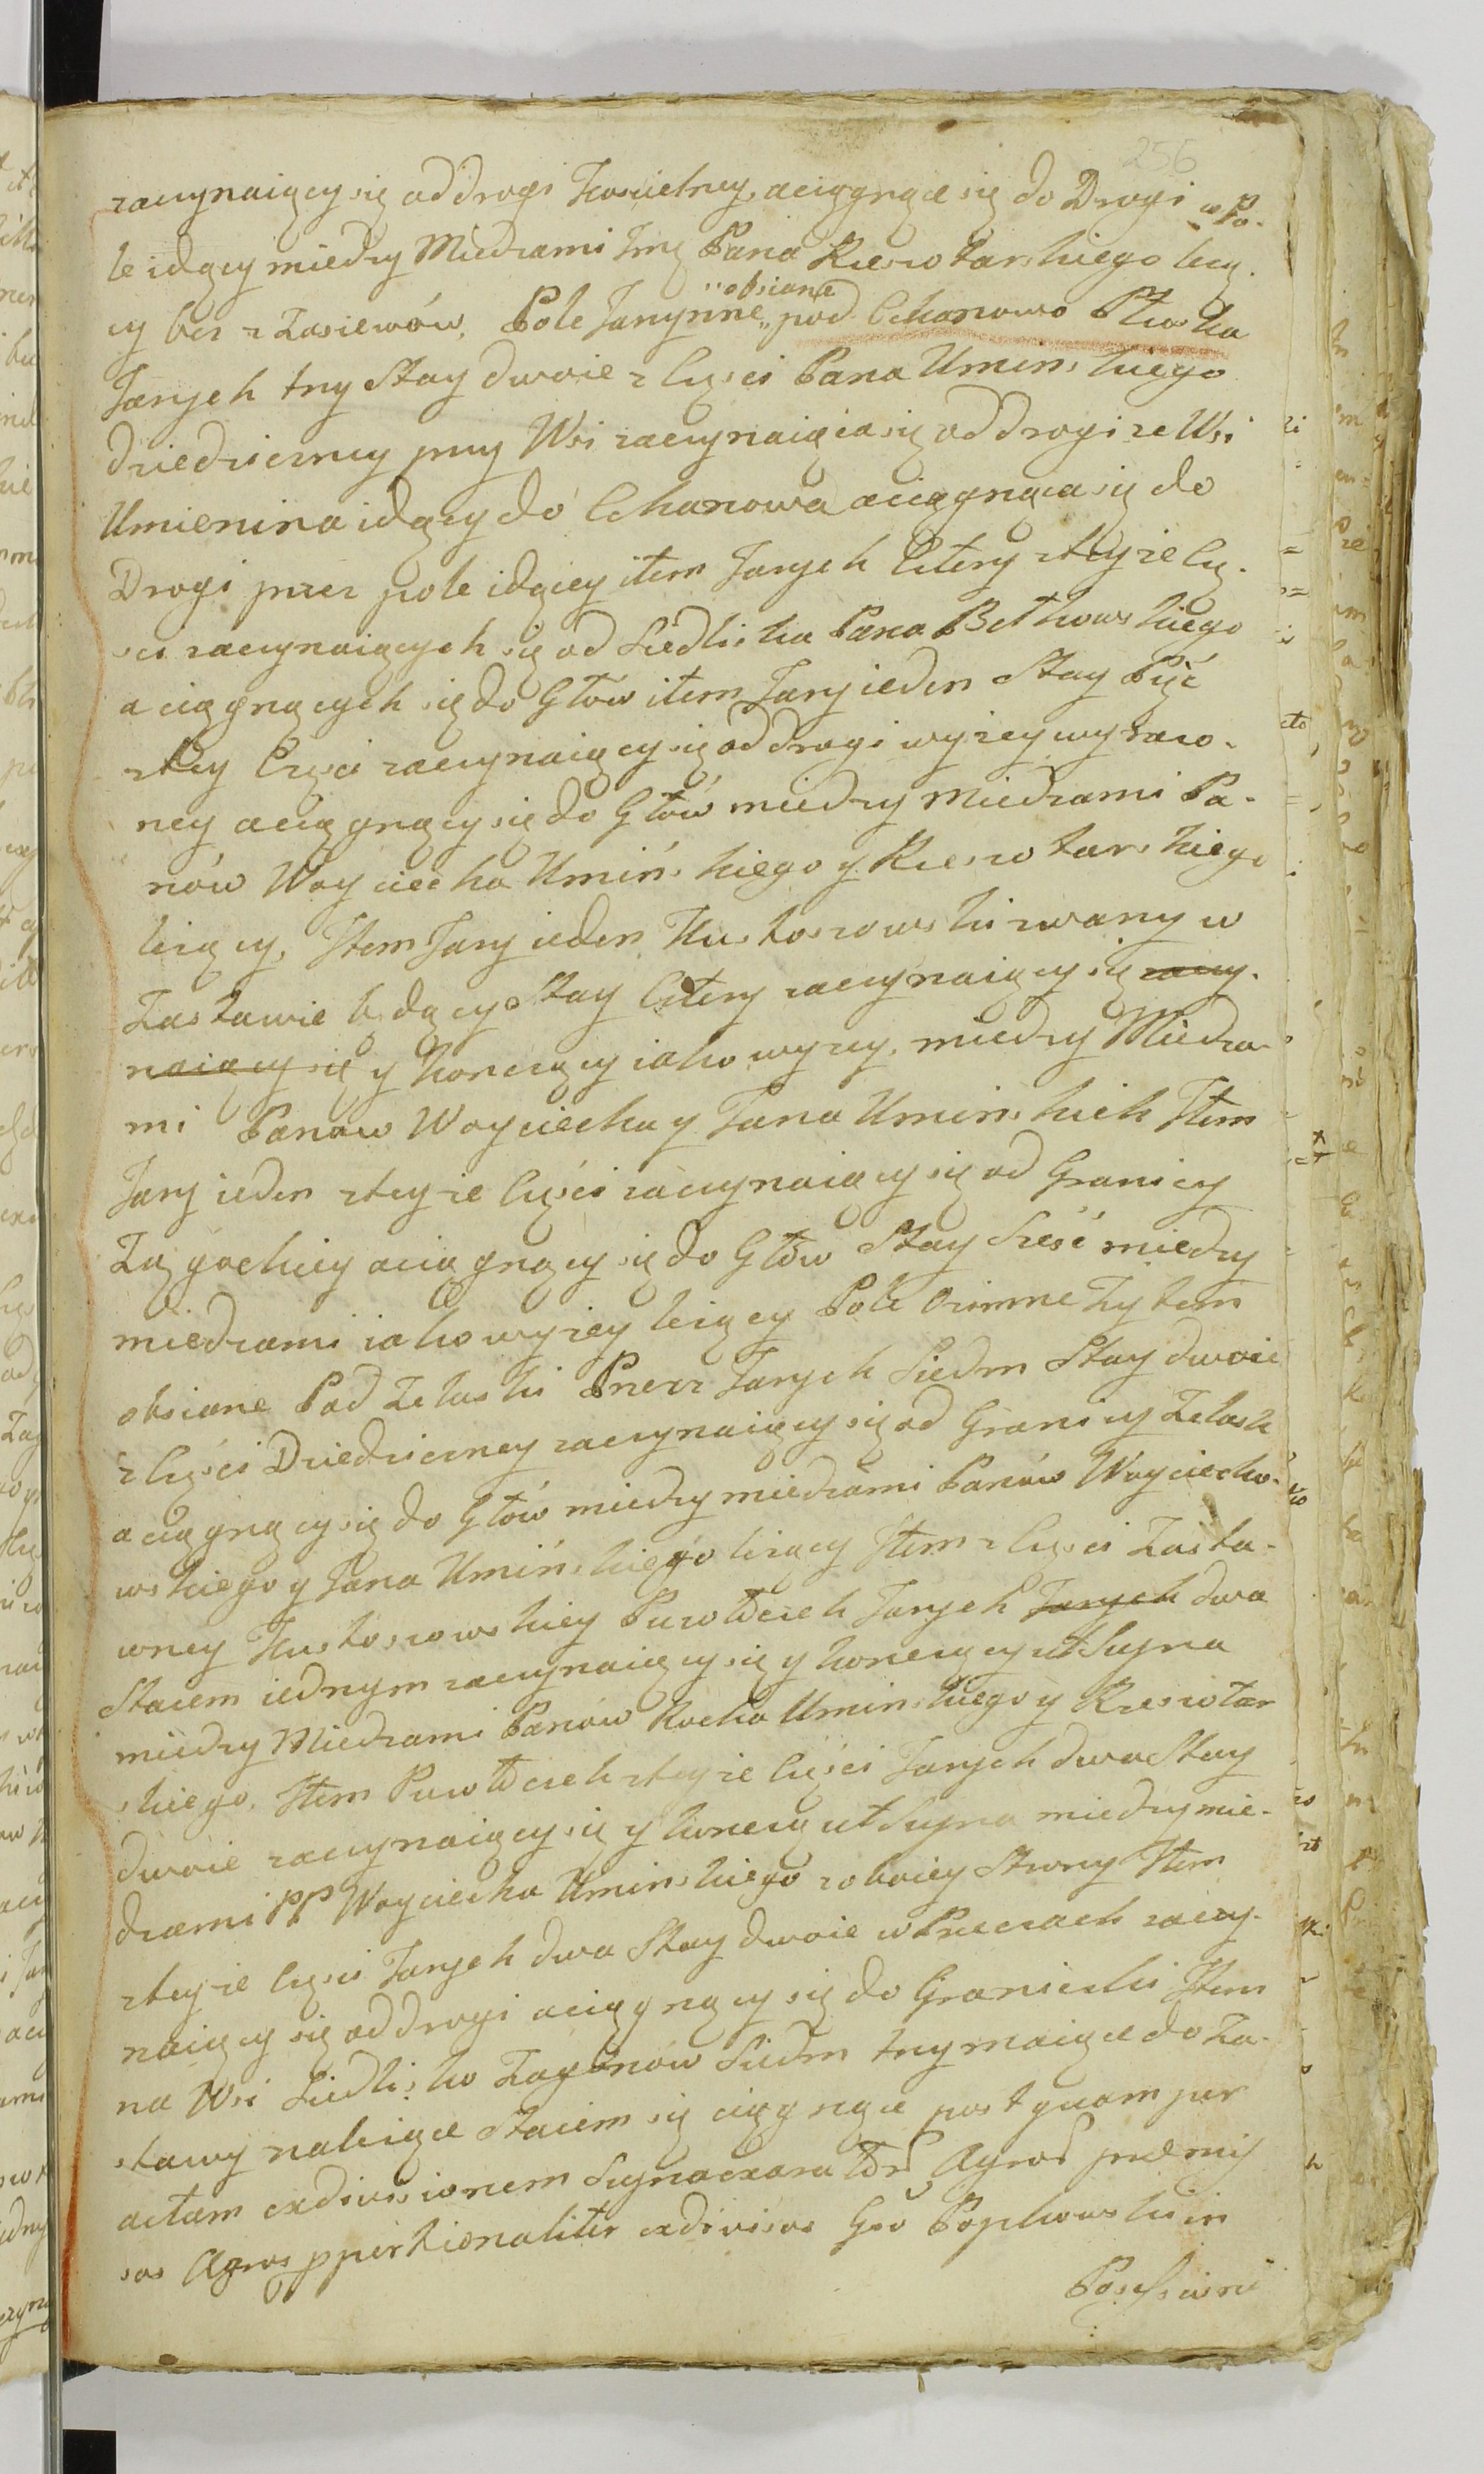 256
zaczynaiący się od drogi Koscielney, aciągnące się do Drogi w Po-
le idący miedzy Miedzami Jmć Pana Rzeszotarskiego lezą-
cy bez zzasiewów, Pole Jarzynne „obsiane„ pod Cekanowo Płoska
Jarzych trzy Stay dwoie z Częsci Pana Uminskiego
dziedziczney przy Wsi zaczynaiąca się od drogi ze Wsi
Umienina idący do Cekanowa aciągnąca się do
Drogi przez pole idącey item Jarzych Cztery zteyze Czę-
sci zaczynaiących się od Siedliska Pana Betkowskiego
a ciągnących się do Głow item Jarz ieden Stay Pięć
ztey Częsci zaczynaiący się od drogi wyzey wyrazo-
ney aciągnący się do Głów miedzy miedzami Pa-
nów Woyciecha Umińskiego y Rzeszotarskiego
lezący, Item Jarz ieden Kustoszowski zwany w
Zastawie będący Stay Cztery zaczynaiący się zaczy-
naiący się y konczący iako wyzey, miedzy Miedza-
mi Panów Woyciecha y Jana Uminskich Item
Jarz ieden zteyze Częsci zaczynaiący się od Granicy
Zągockiey aciągnący się do Głów Stay Szesć miedzy
miedzami iako wyzey lezący Pole Ozimne Zytem
obsiane Pod Zelaski Przecz Jarzych Siedm Stay dwoie
z Częsci Dziedziczney zaczynaiący się od Granicy Zelask
aciągnący się do Głów miedzy miedzami Panów Woyciecho-
wskiego y Jana Umińskiego lezący Item z Częsci Zasta-
wney Kustoszowskiey Puwłściek Jarzych Jarzych dwa
Staiem iednym zaczynaiący się y konczący ut Supra
miedzy Miedzami Panów Rocha Uminskiego y Rzeszotar
skiego. Item Puwłściek zteyze Częsci Jarzych dwa Stay
dwoie zaczynaiący się y koncza ut Supra miedzy mie-
dzami PP Woyciecha Uminskiego zoboiey Strony Item
zteyze Częsci Jarzych dwa Stay dwoie w Przeczach zaczy-
naiący się od drogi aciągnący się do Graniczki Item
na Wsi Siedlisko Zagonów Siedm trzymaiące do Za-
stawy nalezące Staiem się ciągnące post quam per
actam exdivisionem Supraexara Agros præmis
sos Agros pportionaliter exdivisos Gso Popkowski in
Possessione